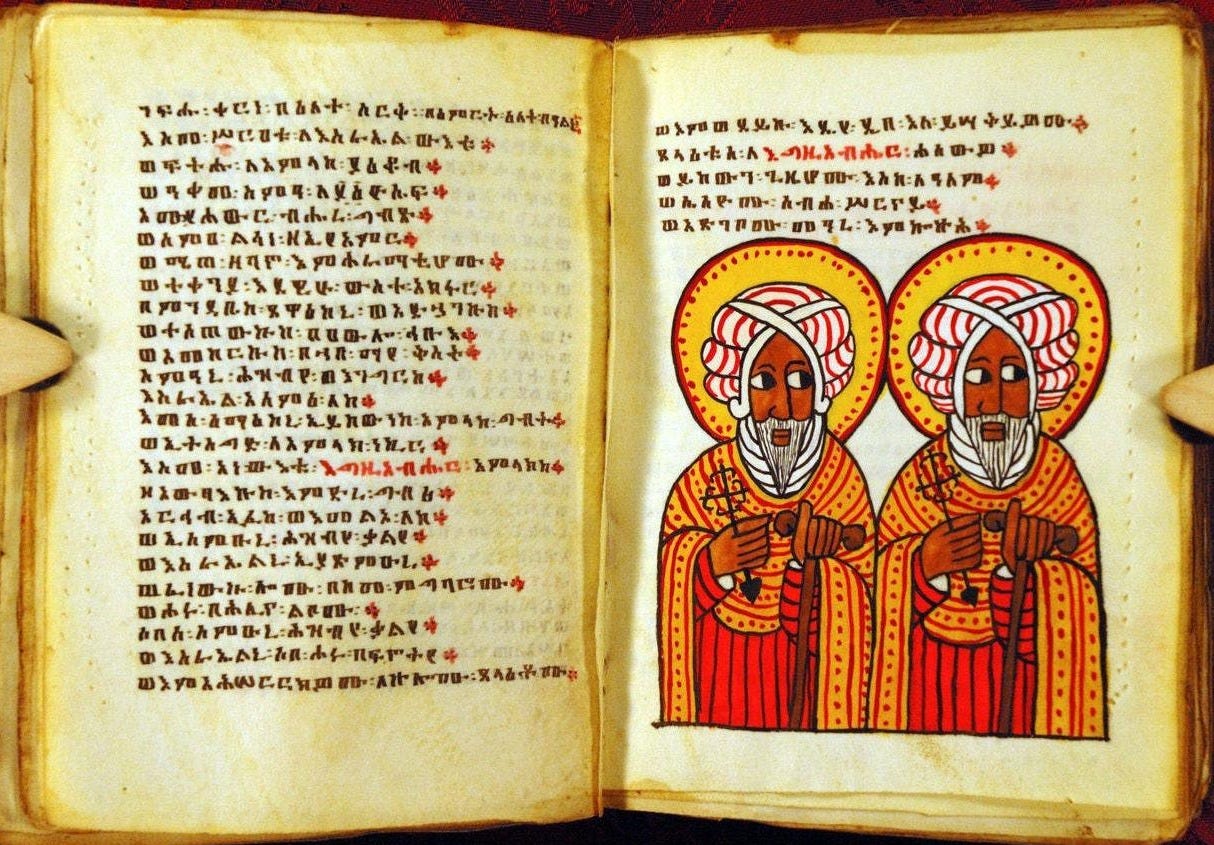 ንፍሑ፡ቀርነ፡በዕለተ፡ሠርቅ፡በእምርት፡ዕለት፡በዓልነ።
እስመ፡ሥርዐቱ፡ለእስራኤል፡ውእቱ።
ወፍትሑ፡ለአምላከ፡ያዕቆብ።
ወዓቀመ፡ስምዓ፡ለዮሴፍ።
አመ፡የሐውር፡ብሔረ፡ግብጽ።
ወሰምዐ፡ልሳነ፡ዘኢያአምር።
ወሜጠ፡ዘባኖ፡እምሕራማቲሆሙ።
ወተቀንያ፡እደዊሁ፡ውስተ፡አክፋር።
በምንዳቤከ፡ጸዋዕከኒ፡ወአድኀንኩከ።
ወተሰጠውኩከ፡በዐውሎ፡ኅቡእ።
ወአመከርኩከ፡በኀበ፡ማየ፡ቅስት።
ስምዐኒ፡ሕዝብየ፡ወእንግርከ።
እስራኤል፡አስምዕ፡ለከ።
እመሰ፡ሰማዕከኒ፡ኢይከውነከ፡አምላከ፡ግብት።
ወኢትስግድ፡ለአምላክ፡ነኪር።
እስመ፡አነ፡ውእቱ፡እግዚአብሔር፡አምላክከ።
ዘአውፃእኩከ፡እምድረ፡ግብጽ።
አርኅብ፡አፉከ፡ወእመልኦ፡ለከ።
ወኢሰምዑኒ፡ሕዝብየ፡ቃልየ።
ወእስራኤልኒ፡ኢያጽምዑኒ።
ወፈነውኩ፡ሎሙ፡በከመ፡ምግባሮሙ።
ወሖሩ፡በሕሊና፡ልቦሙ።
ሶበሰ፡ሰምዑኒ፡ሕዝብየ፡ቃልየ።
ወእስራኤልኒ፡ሶበ፡ሖሩ፡በፍኖትየ።
ወእምአሕሠርክዎሙ፡ለኵሎሙ፡ጸላእቶሙ።
ወእምወደይኩ፡እዴየ፡ዲበ፡እለ፡ይሣቅይዎሙ።
ጸላእቱሰ፡ለእግዚአብሔር፡ሐሰውዎ።
ወይከውን፡ጊዜሆሙ፡እስከ፡ለዓለም።
ወሴሰዮሙ፡ስብሐ፡ሥርናይ።
ወአጽገቦሙ፡መዓረ፡እምኰኵሕ።